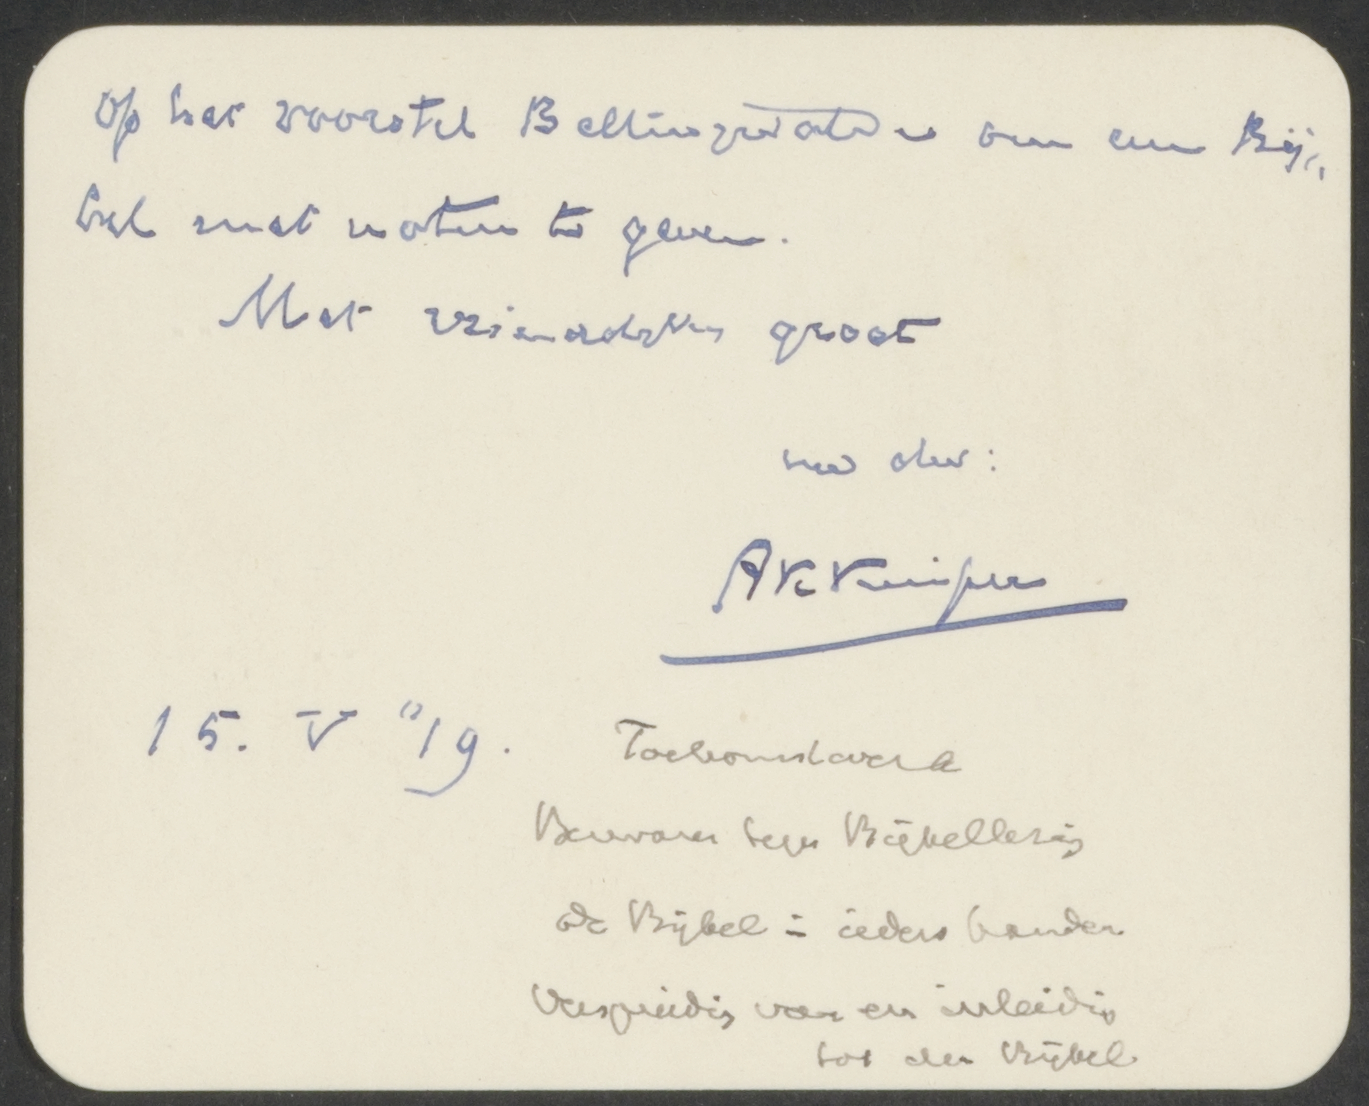 Op het voorstel Bellingwolde om een Bij„
bel met noten te geven.
Met vriendelijken groet
uw dw:
AKKuiper
15. V "19.
Toekomstwerk
Bezwaren tegen Bijbellezing
de Bijbel in ieders handen
Verspreiding van en inleiding
tot den Bijbel